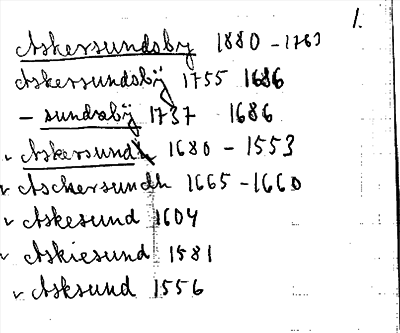 1.
Askersundsby 1880 - 1763
Askersundsbÿ 1755 1686
- sundzbÿ 1737 1686
v Askersund 1680 - 1553
v Aschersundh 1665 - 1660
v Askesund 1604
v Askiesund 1581
v Asksund 1556